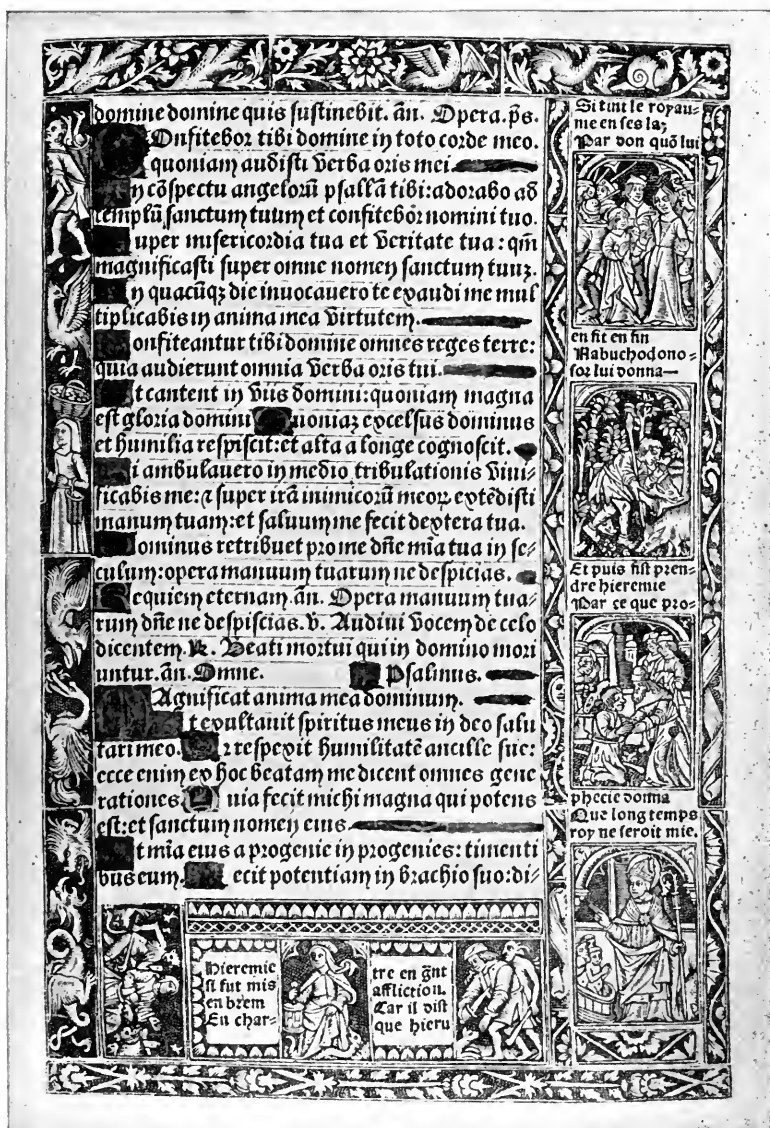 domine domine quis sustinebit. añ. Opera. p̄s.
Onfitebor tibi domine in toto corde meo.
quoniam audisti verba oris mei.
n cōspectu angelorū psallā tibi: adorabo ad
templū sanctum tuum et confitebor nomini tuo.
uper misericordia tua et veritate tua: qm̄
magnificasti super omne nomen sanctum tuuz.
n quacūqz die inuocauero te exaudi me mul
tiplicabis in anima mea virtutem.
onfiteantur tibi domine omnes reges terre:
quia audierunt omnia verba oris tui.
t cantent in viis domini: quoniam magna
est gloria domini uoniaz excelsus dominus
et humilia respiscit: et alta a longe cognoscit.
i ambulauero in medio tribulationis viui-
ficabis me: ⁊ super irā inimicorū meoꝝ extēdisti
manum tuam: et saluum me fecit dextera tua.
ominus retribuet pro me dn̄e mīa tua in se-
culum: opera manuum tuarum ne despicias.
equiem eternam. añ. Opera manuum tua-
rum dn̄e ne despiscias. v. Audiui vocem de celo
dicentem. ℟. Beati mortui qui in domino mori
untur. añ. Omne. Psalmus.
Agnificat anima mea dominum.
t exultauit spiritus meus in deo salu
tari meo. respexit humilitatē ancille sue:
ecce enim ex hoc beatam me dicent omnes gene
rationes. uia fecit michi magna qui potens
est: et sanctum nomen eius.
t mīa eius a progenie in progenies: timenti
bus eum. ecit potentiam in brachio suo: di-
Si tint le royau-
me en ses laz
Par don quō lui
en fit en fin
Nabuchodono-
sor lui donna
Et puis fist pren-
dre hieremie
Par ce que pro-
phecie donna
Que long temps
roy ne seroit mie.
Hieremie
si fut mis
en brem
En char-
tre en gn̄t
affliction.
Car il dist
que hieru